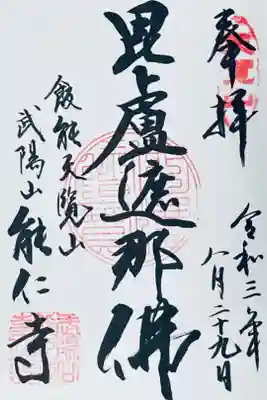 奉拝
令和三年
八月二十九日
毘盧遮那佛
飯能天覧山
武陽山
能仁寺